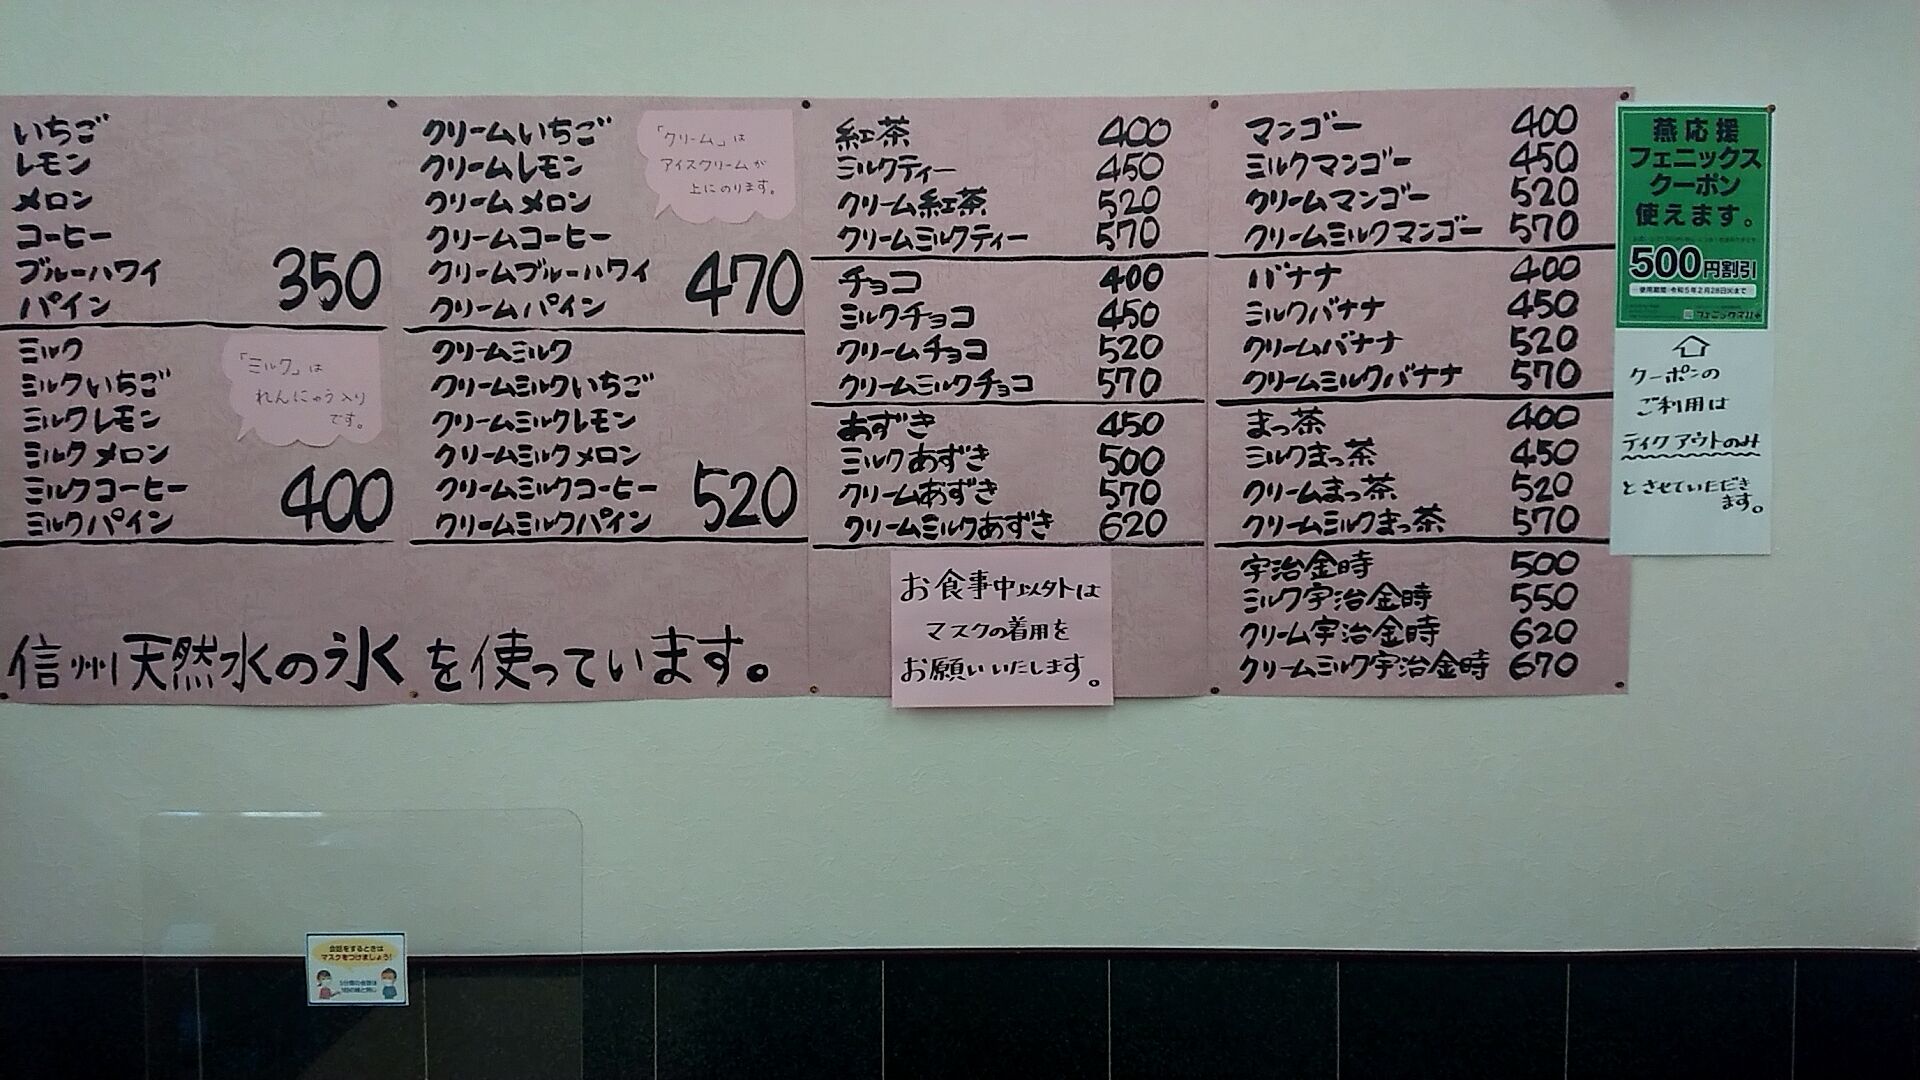 いちご
レモン
メロン
コーヒー
ブルーハワイ
パイン
350
ミルク
ミルクいちご
ミルクレモン
ミルクメロン
ミルクコーヒー
ミルクパイン
400
「ミルク」は
れんにゅう入り
です。
クリームいちご
クリームレモン
クリームメロン
クリームコーヒー
クリームブルーハワイ
クリームパイン
470
「クリーム」は
アイスクリームが
上にのります。
クリームミルク
クリームミルクいちご
クリームミルクレモン
クリームミルクメロン
クリームミルクコーヒー
クリームミルクパイン
520
信州天然水の氷を使っています。
紅茶 400
ミルクティー 450
クリーム紅茶 520
クリームミルクティー 570
チョコ 400
ミルクチョコ 450
クリームチョコ 520
クリームミルクチョコ 570
あずき 450
ミルクあずき 500
クリームあずき 570
クリームミルクあずき 620
お食事中以外は
マスクの着用を
お願いいたします。
マンゴー 400
ミルクマンゴー 450
クリームマンゴー 520
クリームミルクマンゴー 570
バナナ 400
ミルクバナナ 450
クリームバナナ 520
クリームミルクバナナ 570
まっ茶 400
ミルクまっ茶 450
クリームまっ茶 520
クリームミルクまっ茶 570
宇治金時 500
ミルク宇治金時 550
クリーム宇治金時 620
クリームミルク宇治金時 670
燕応援
フェニックス
クーポン
使えます。
500円割引
使用期間 令和5年2月28日(火)まで
フェニックス11+
クーポンの
ご利用は
テイクアウトのみ
とさせていただき
ます。
会話をするときは
マスクをつけましょう!
5分間の会話は
1回の咳と同じ